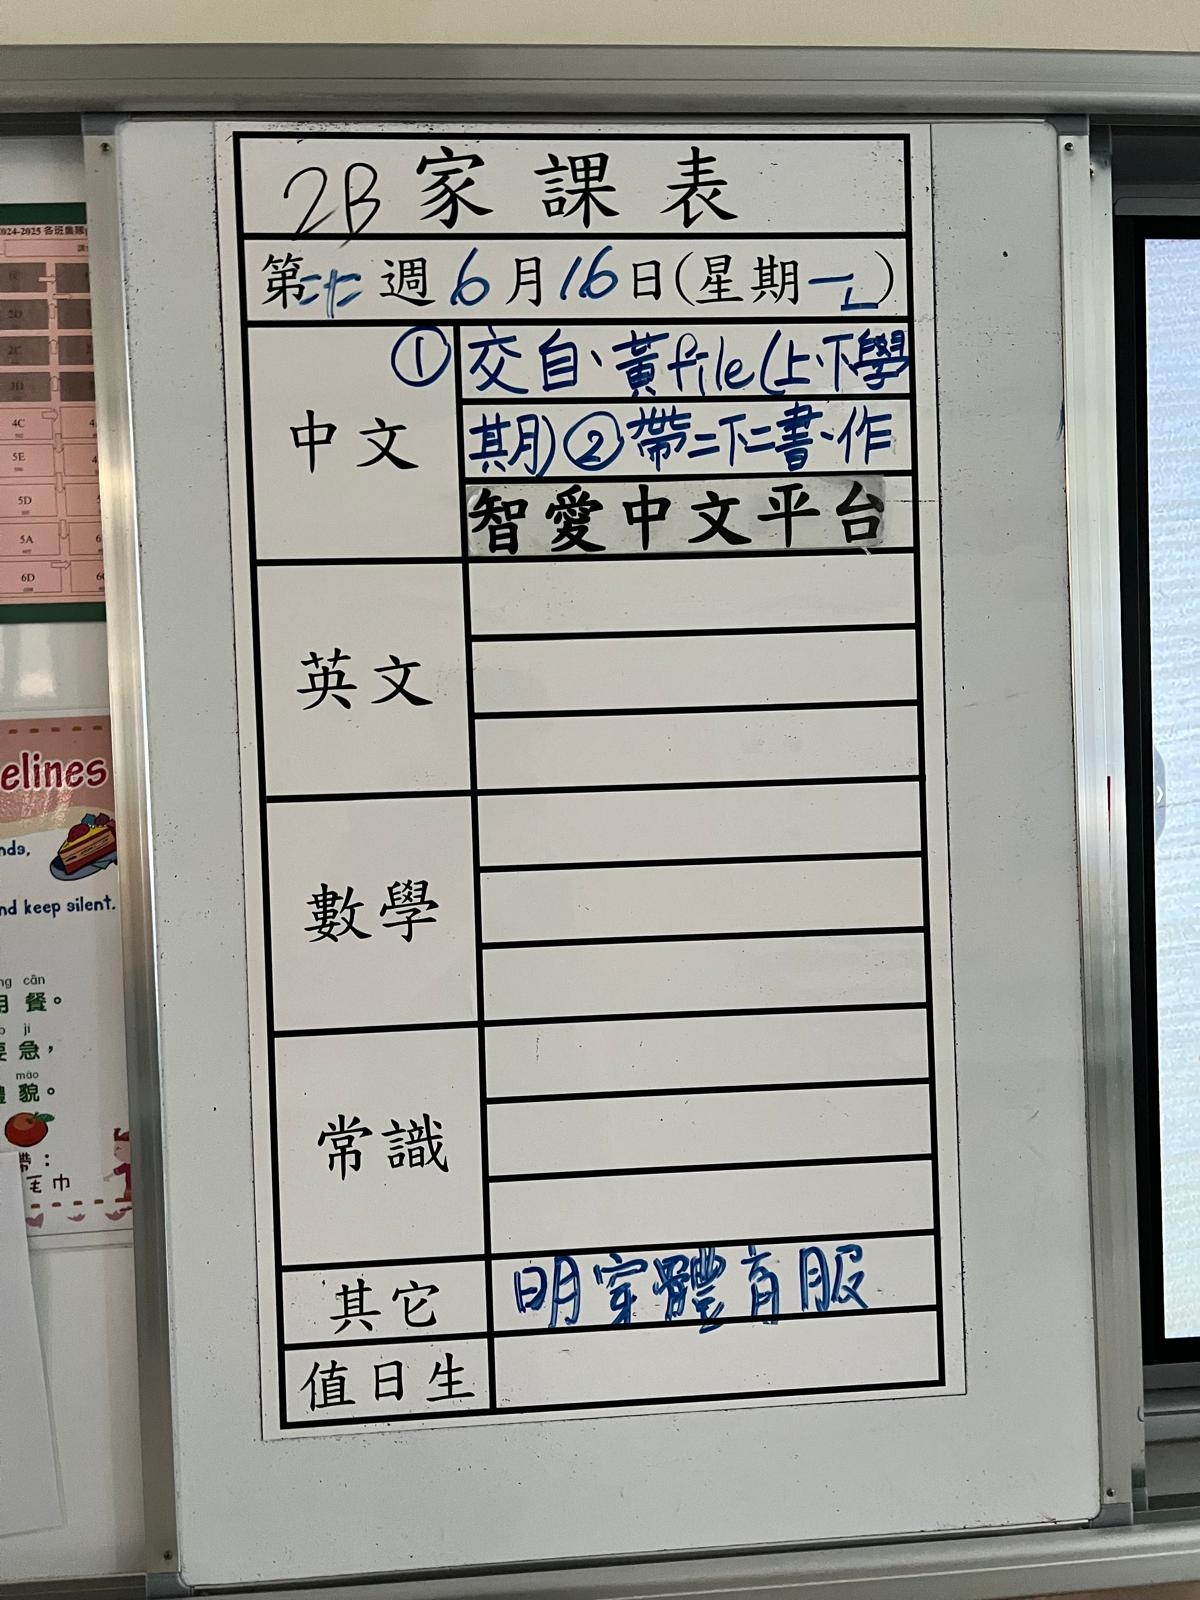 2B 家課表
第二十七週 6月16日(星期一)
中文
① 交自、黃file(上、下學
期) ② 帶二下二書、作
智愛中文平台
英文
數學
常識
其它
明穿體育服
值日生
2024-2025 各班集隊
2D
2C
3D
4C
5E
5D
5A
6D
elines
nds,
nd keep silent.
cān
餐。
jí
急，
mào
貌。
帶：
毛巾